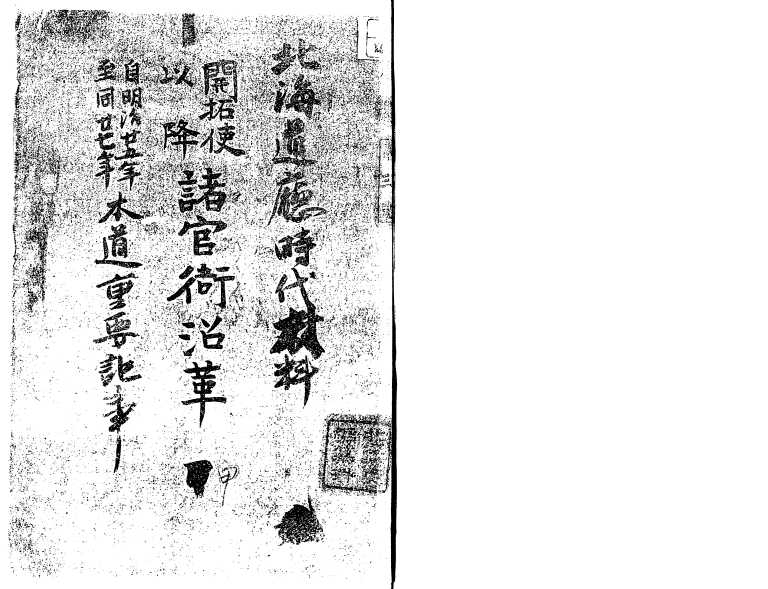 北海道廳時代材料
開拓使
以降
諸官衙沿革 甲
自明治廿五年
至同廿七年
本道重要記事